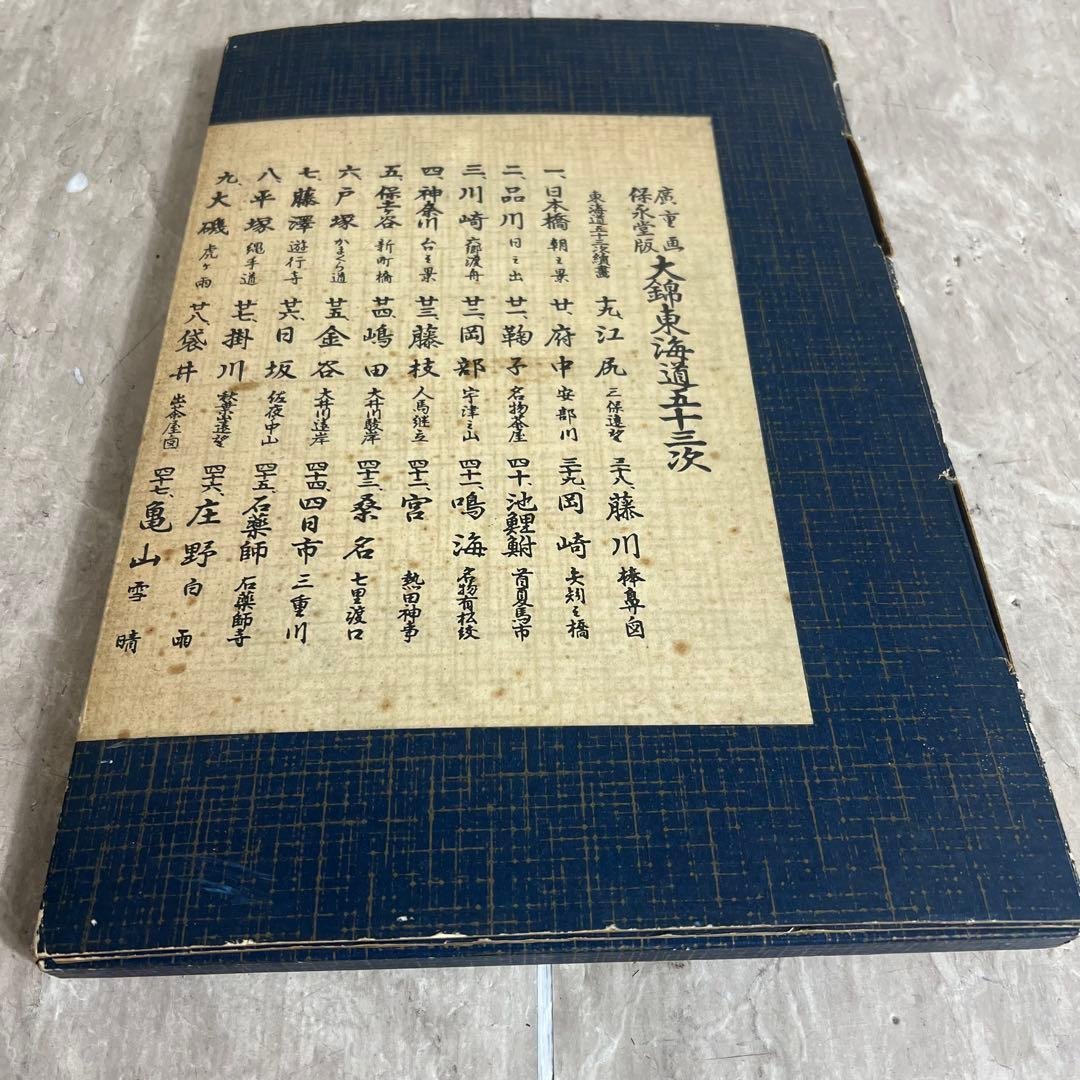 廣重画
保永堂版
大錦東海道五十三次
東海道五十三次續畫
一、日本橋 朝之景
二、品川 日之出
三、川崎 六郷渡舟
四、神奈川 台之景
五、保土ヶ谷 新町橋
六、戸塚 かまくら道
七、藤澤 遊行寺
八、平塚 縄手道
九、大磯 虎ヶ雨
十九、江尻 三保遠望
廿、府中 安部川
廿一、鞠子 名物茶屋
廿二、岡部 宇津之山
廿三、藤枝 人馬継立
廿四、嶋田 大井川駿岸
廿五、金谷 大井川遠岸
廿六、日坂 佐夜中山
廿七、掛川 秋葉山遠望
廿八、袋井 出茶屋図
三十八、藤川 棒鼻図
三十九、岡崎 矢矧之橋
四十、池鯉鮒 首夏馬市
四十一、鳴海 名物有松絞
四十二、宮 熱田神事
四十三、桑名 七里渡口
四十四、四日市 三重川
四十五、石薬師 石薬師寺
四十六、庄野 白雨
四十七、亀山 雪晴